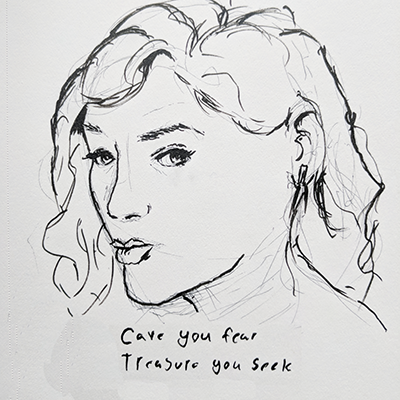 Cave you fear
Treasure you seek